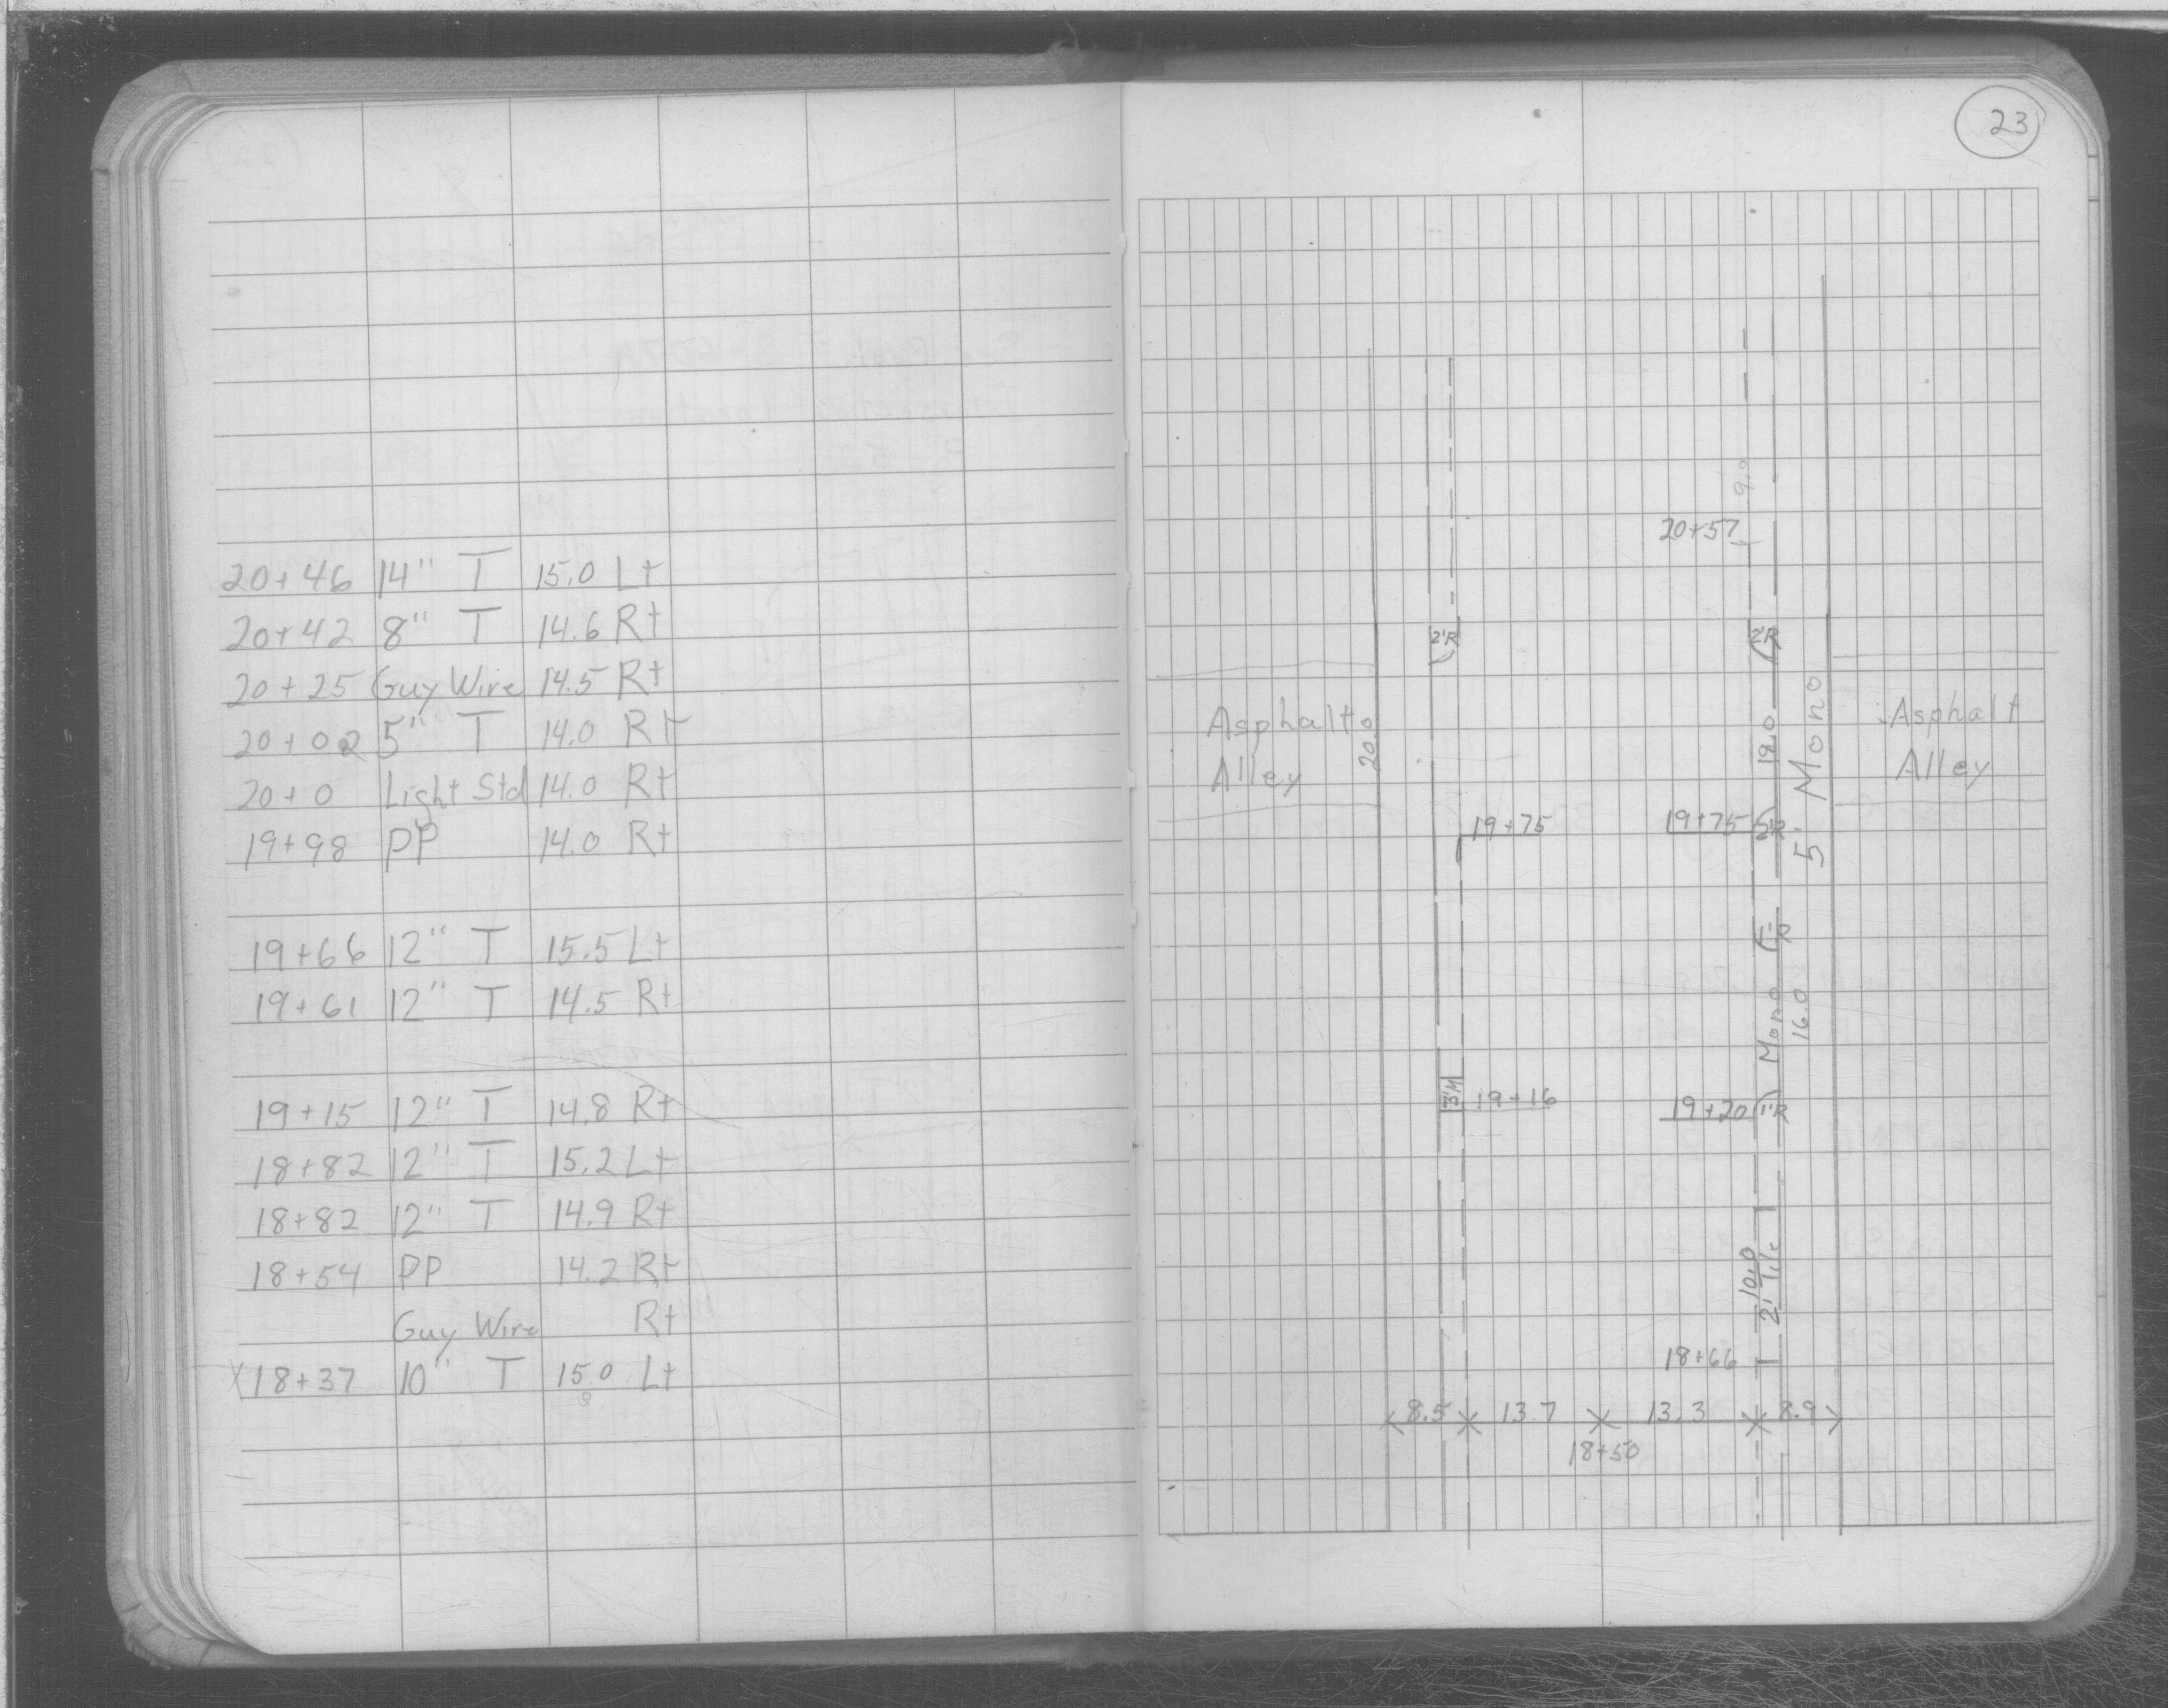 20+46 14" T 15.0 Lt
20+42 8" T 14.6 Rt
20+25 Guy Wire 14.5 Rt
20+02 5" T 14.0 Rt
20+0 Light Std 14.0 Rt
19+98 PP 14.0 Rt
19+66 12" T 15.5 Lt
19+61 12" T 14.5 Rt
19+15 12" T 14.8 Rt
18+82 12" T 15.2 Lt
18+82 12" T 14.9 Rt
18+54 PP 14.2 Rt
Guy Wire Rt
X 18+37 10" T 15.0 Lt
23
9.0
20+57
2'R 2'R
Asphalt
Alley
20.0
19.0
5' Mono
Asphalt
Alley
19+75 19+75 2'R
1'R
Mono
16.0
3'M 19+16 19+20 1'R
2' Tile
18+66
8.5 13.7 13.3 8.9
18+50